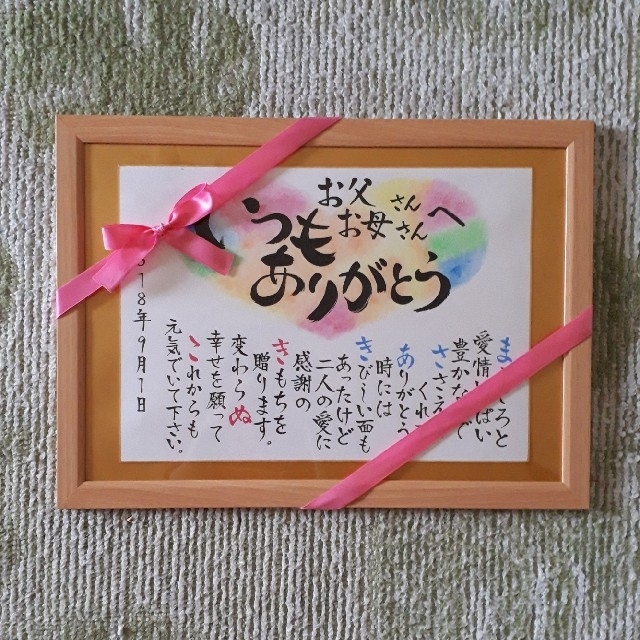 お父さん
お母さんへ
いつも
ありがとう
ま しろと
愛情いっぱい
豊かな で
ささえ くれ
ありがとう
時には
きびし〜い面も
あったけど
二人の愛に
感謝の
きもちを
贈ります。
変わらぬ
幸せを願って
これからも
元気でいて下さい。
18年9月1日